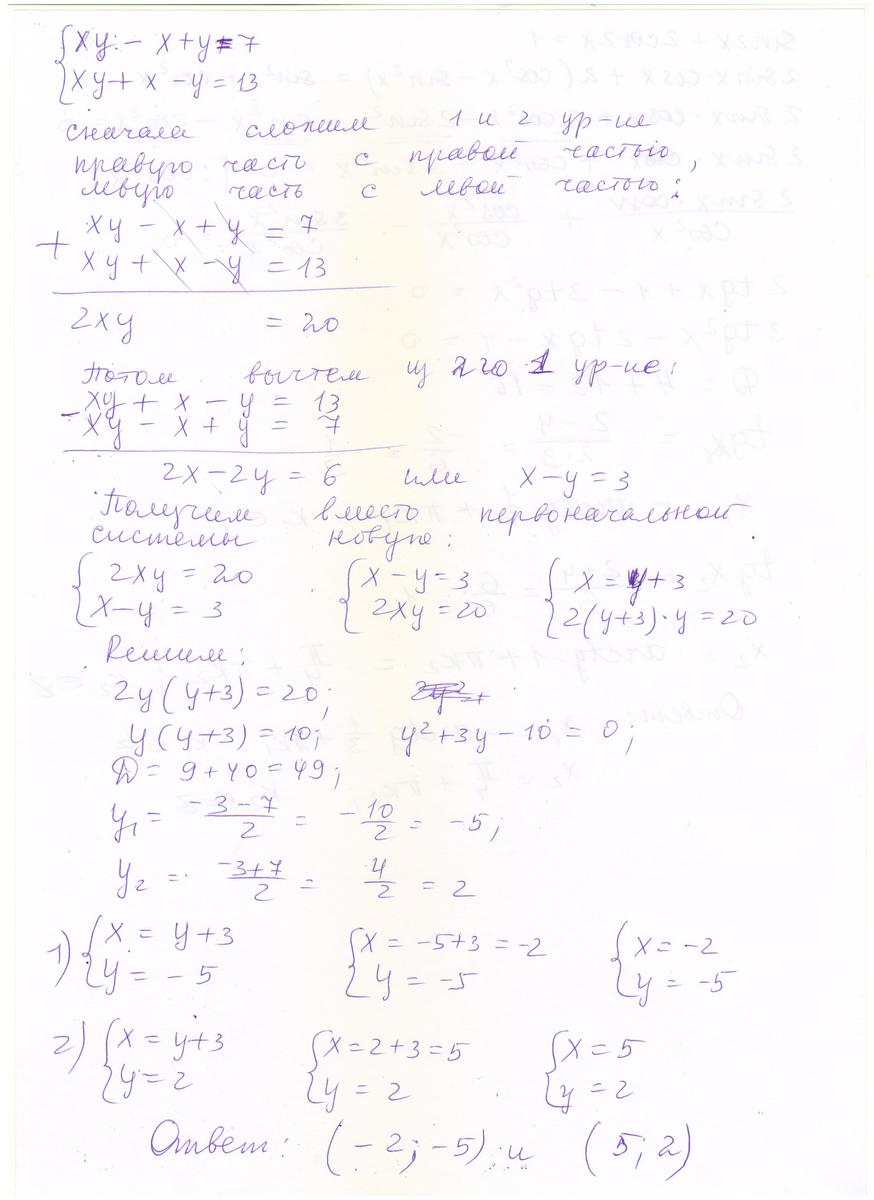 { xy - x + y = 7
{ xy + x - y = 13
сначала сложим 1 и 2 ур-ие
правую часть с правой частью,
левую часть с левой частью:
+ xy - x + y = 7
xy + x - y = 13
2xy = 20
Потом вычтем из 2го 1 ур-ие:
- xy + x - y = 13
xy - x + y = 7
2x - 2y = 6 или x - y = 3
Получим вместо первоначальной
системы новую:
{ 2xy = 20 { x - y = 3 { x = y + 3
{ x - y = 3 { 2xy = 20 { 2(y+3)·y = 20
Решим:
2y(y+3) = 20;
y(y+3) = 10; y² + 3y - 10 = 0;
D = 9 + 40 = 49;
y₁ = (-3-7)/2 = -10/2 = -5;
y₂ = (-3+7)/2 = 4/2 = 2
1) { x = y + 3 { x = -5+3 = -2 { x = -2
{ y = -5 { y = -5 { y = -5
2) { x = y+3 { x = 2+3 = 5 { x = 5
{ y = 2 { y = 2 { y = 2
Ответ: (-2; -5) и (5; 2)